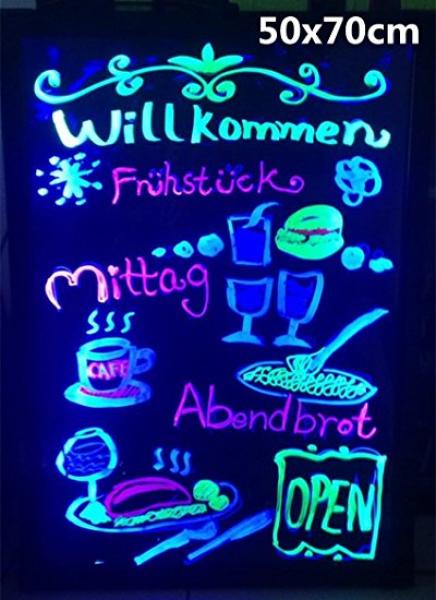 50x70cm
Willkommen
Frühstück
Mittag
CAFE
Abendbrot
OPEN